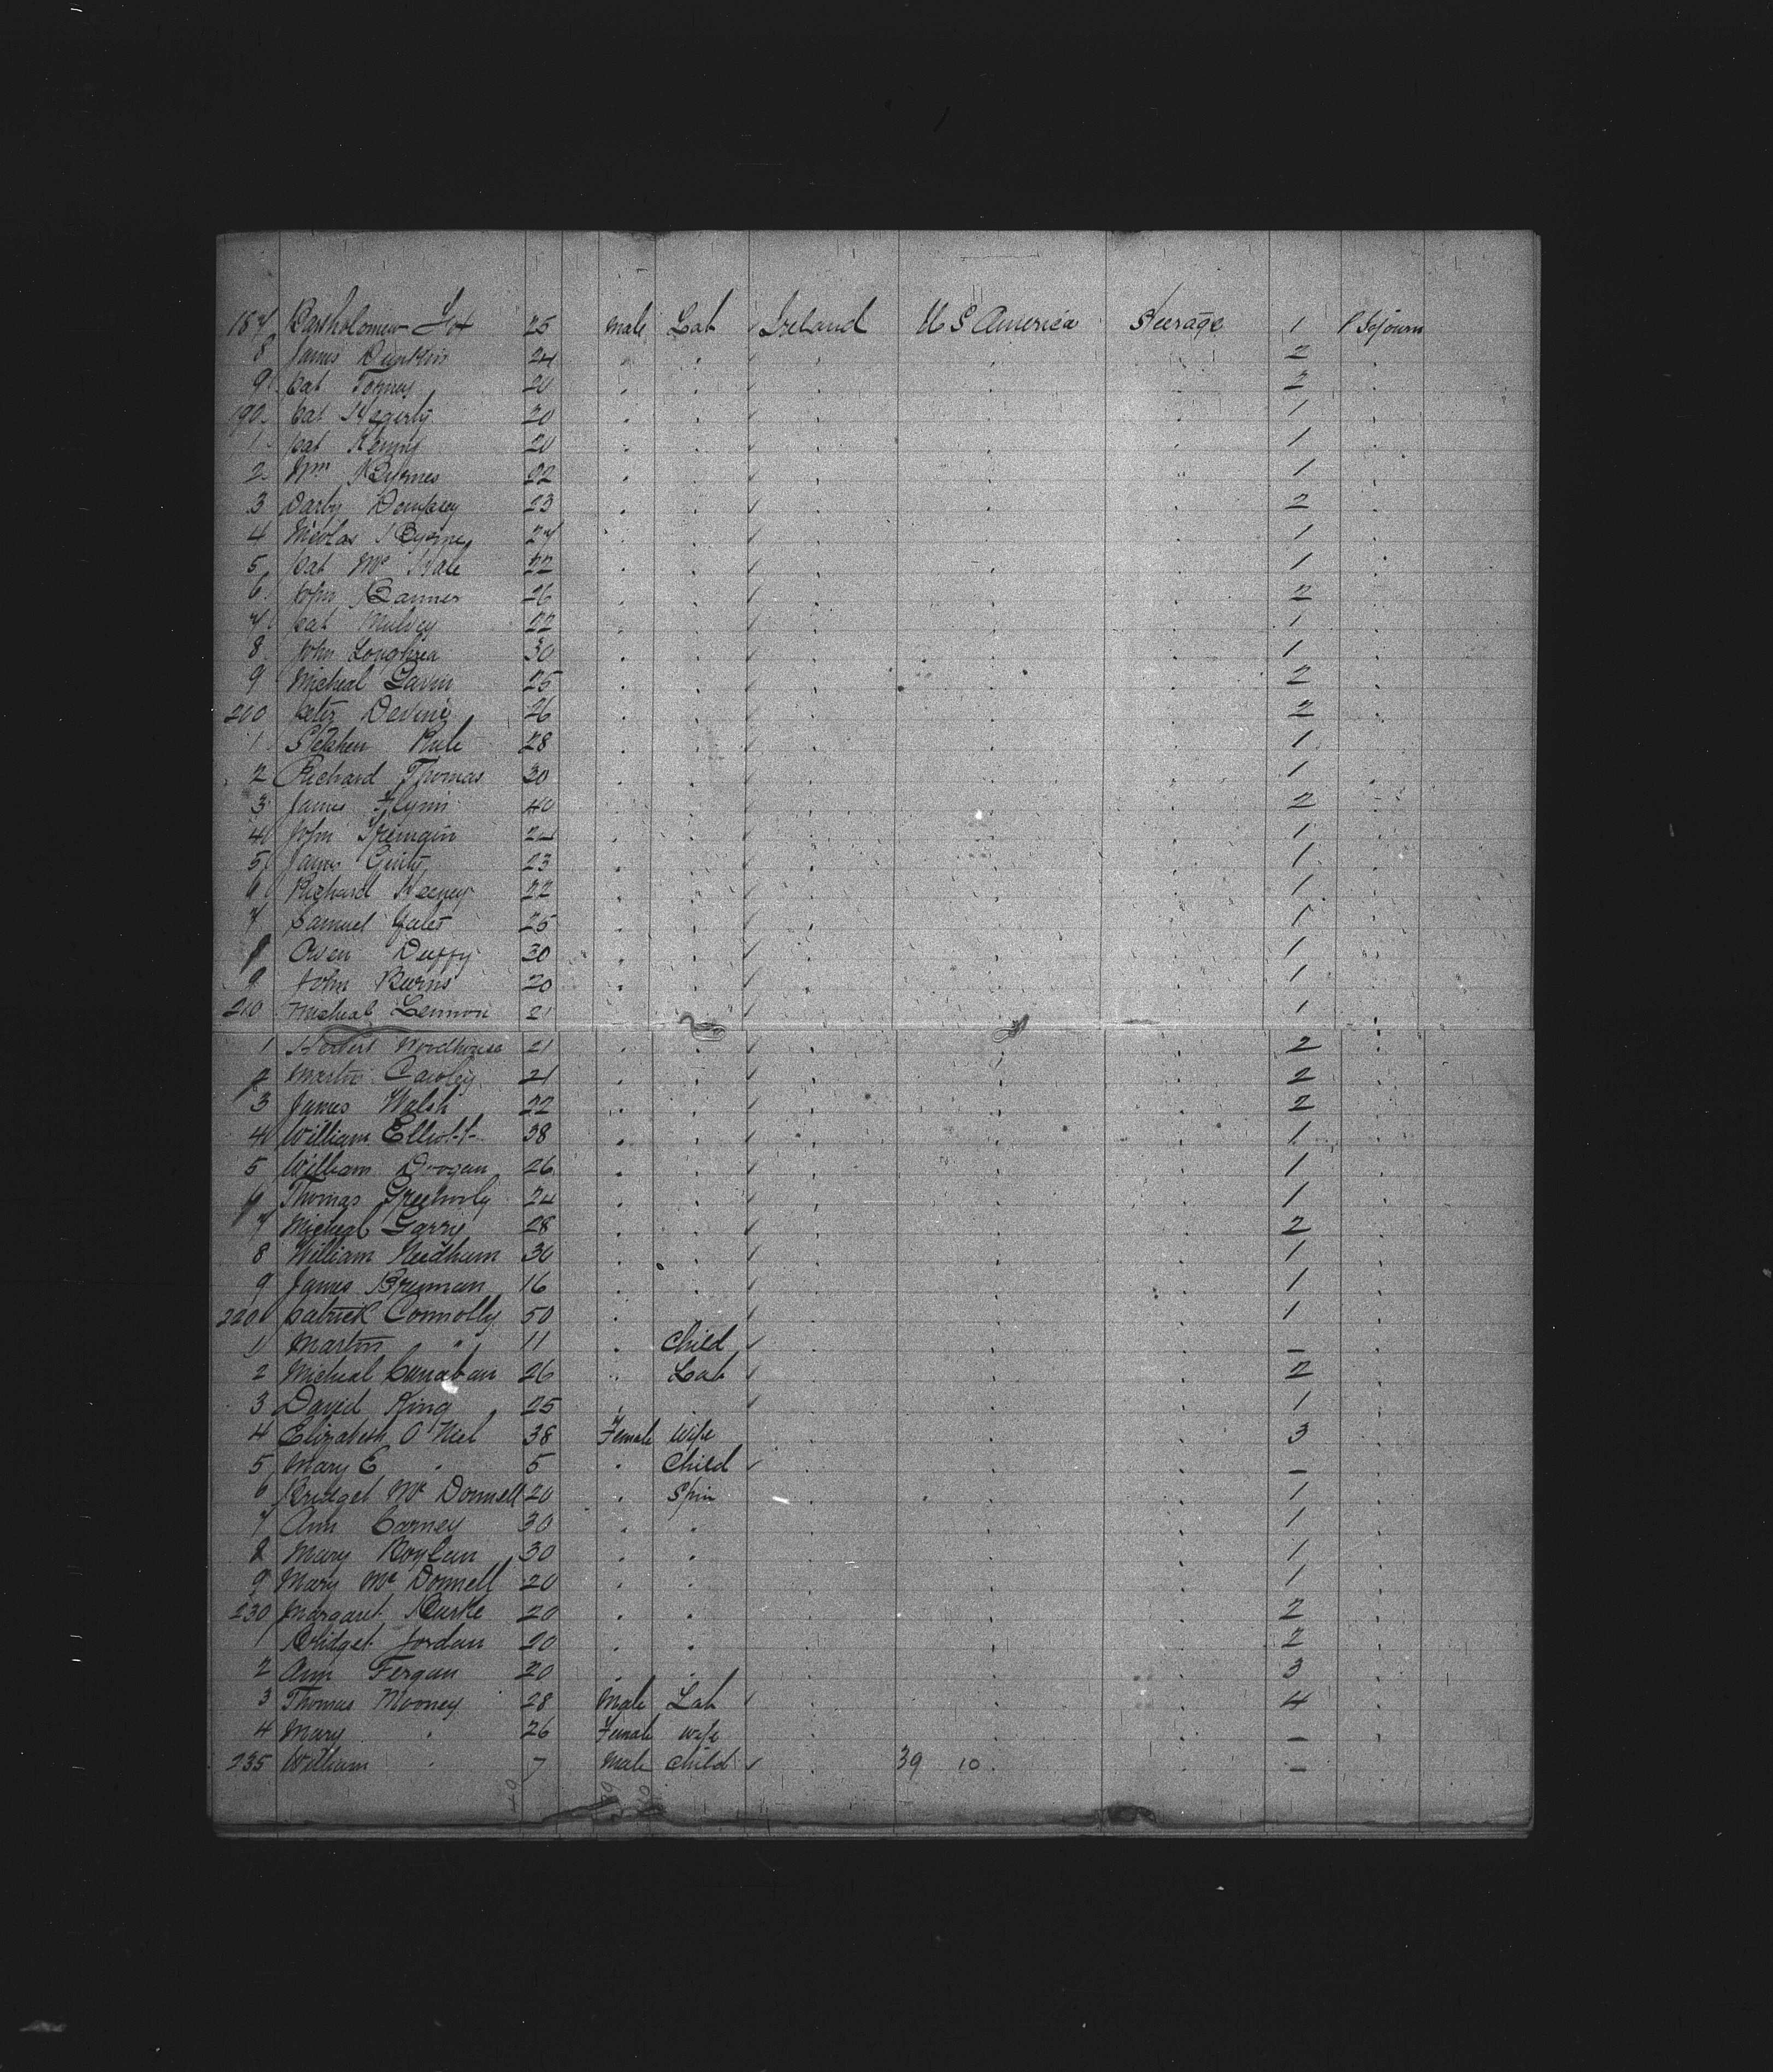 187 Bartholomew Fox 25 Male Lab Ireland U S America Steerage 1 P Sojourn
8 James 24 2
9 Pat Tormey 20 2
190 Pat Hegerty 20 1
1 Pat Kenny 20 1
2 Wm Byrnes 22 1
3 Darby Dempsey 23 2
4 Nicolas Byrne 27 1
5 Pat Mc Hale 22 1
6 John 26 2
7 Pat Mulvey 22 1
8 John Loughrea 30 1
9 Micheal Gavin 25 2
200 Peter Devine 26 2
1 Stephen 28 1
2 Richard Thomas 30 1
3 James Flynn 40 2
4 John 1
5 James Ginty 23 1
6 Richard Heeney 22 1
7 Samuel Yates 25 1
8 Owen Duffy 30 1
9 John Burns 20 1
210 Micheal Lennon 21 1
1 Herbert Woodhouse 21 2
2 Martin Cawley 21 2
3 James Walsh 22 2
4 William Elliott 38 1
5 William Drogan 26 1
6 Thomas 24 1
7 Micheal Garry 28 2
8 William Needham 30 1
9 James Brennan 16 1
220 Patrick Connolly 50 1
1 Martin " 11 Child –
2 Micheal Canaban 26 Lab 2
3 David King 25 1
4 Elizabeth O'Niel 38 Female Wife 3
5 Mary E " 5 Child –
6 Bridget Mc Donnell 20 Spin 1
7 Ann Carney 30 1
8 Mary Boylan 30 1
9 Mary Mc Donnell 20 1
230 Margaret Burke 20 2
1 Bridget Jordan 20 2
2 Ann Fergan 20 3
3 Thomas Mooney 28 Male Lab 4
4 Mary " 26 Female Wife –
235 William " 7 Male Child 39 10 –